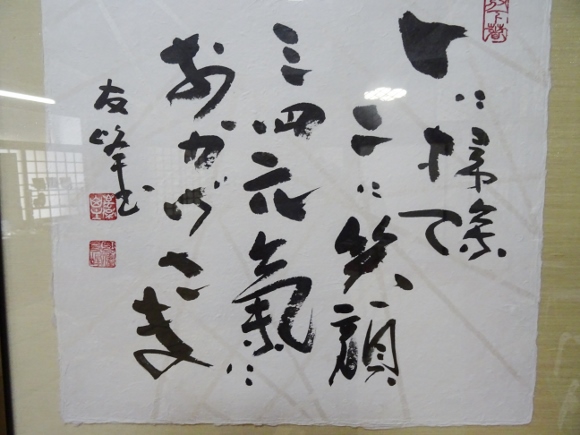 一に掃除
二に笑顔
三四元氣に
おかげさま
友峰書